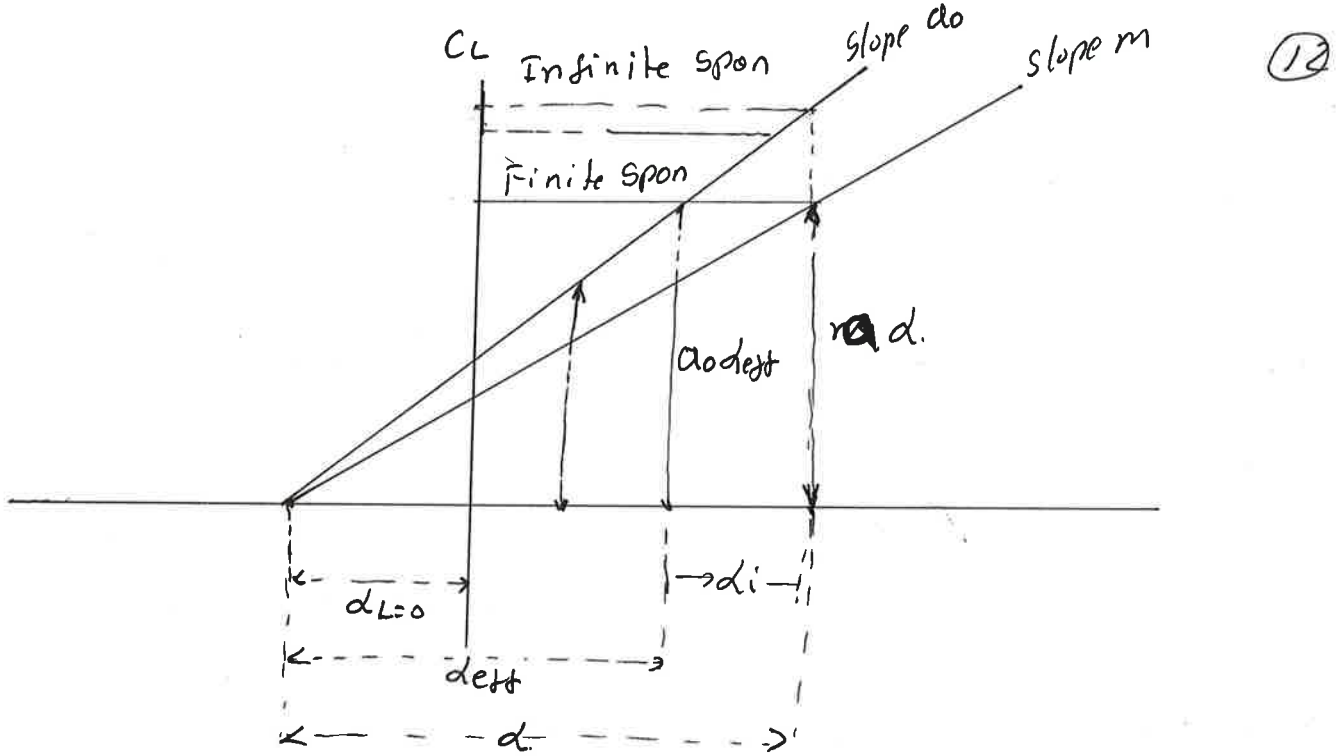 CL
Infinite Spon
Slope ao
Slope m
12
Finite Spon
ao αeff
α.
αi
αL=0
αeff
α.